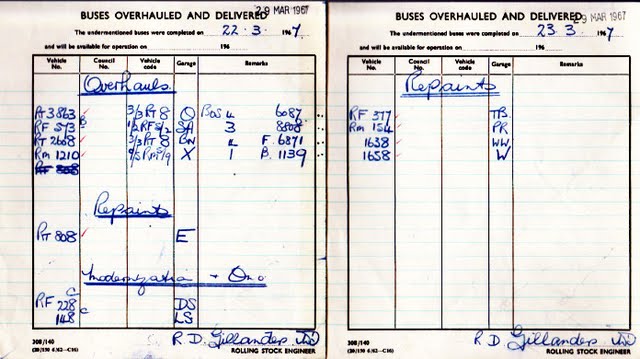 BUSES OVERHAULED AND DELIVERED
29 MAR 1967
The undermentioned buses were completed on 22.3. 1967
and will be available for operation on 196
Vehicle No. Council No. Vehicle code Garage Remarks
Overhauls
RT 3863 3/3RT8 Q BOS 4 6087
RF 513 B SA 3 8808
RT 2608 3/3RT8 BN L F. 6871
RM 1210 X 1 B. 1139
RF 808
Repaints
RT 808 E
Modernization + Omo
RF 228 C DS
148 C LS
R. D. Gillanders
308/140
ROLLING STOCK ENGINEER
BUSES OVERHAULED AND DELIVERED
29 MAR 1967
The undermentioned buses were completed on 23.3. 1967
and will be available for operation on 196
Vehicle No. Council No. Vehicle code Garage Remarks
Repaints
RF 377 TB
RM 154 PR
1638 WW
1658 W
R.D. Gillanders
308/140
ROLLING STOCK ENGINEER